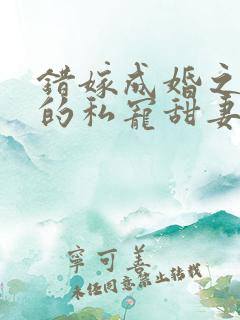 错嫁成婚之
的私宠甜妻
寧可善
未经同意禁止转载